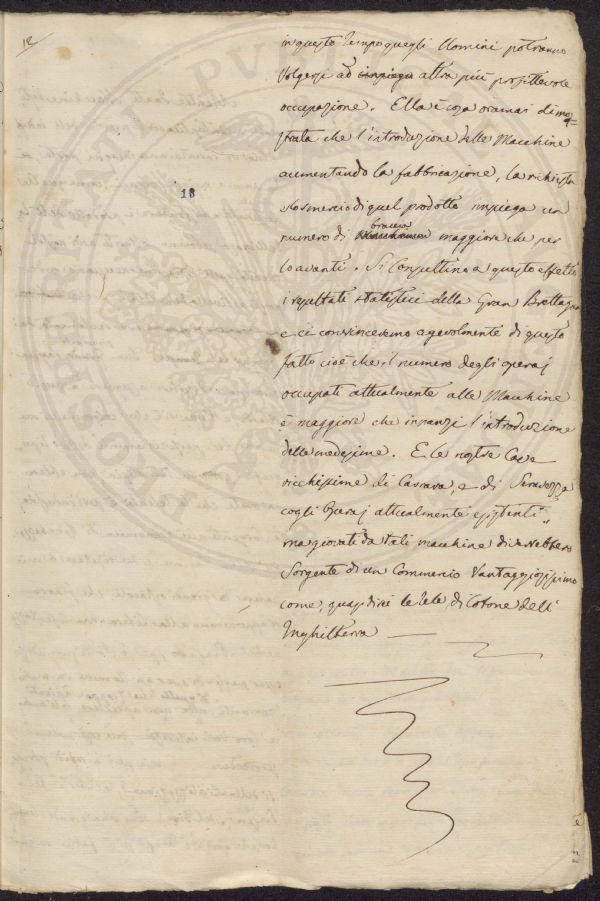 12/
18
in questo tempo quegli Uomini potranno
Volgersi ad impiego altra più profittevole
occupazione. Ella è cosa oramai dimo=
strata che l'introduzione delle Macchine
aumentando la fabbricazione, la richiesta
lo smercio di quel prodotto impiega un
braccia
numero di maggiore che per
lo avanti. Si Consultino a questo effetto
i resultati statistici della Gran Brettagna
e ci convinceremo agevolmente di questo
fatto cioè che il numero degli operaj
occupati attualmente alle Macchine
è maggiore che innanzi l'introduzione
delle medesime. E le nostre Cave
ricchissime di Carrara, e di Seravezza
cogli Operaj attualmente esistenti
ma giovati da tali macchine diverrebbero
Sorgente di un Commercio Vantaggiosissimo
come, quasi dirò le tele di Cotone dell'
Inghilterra